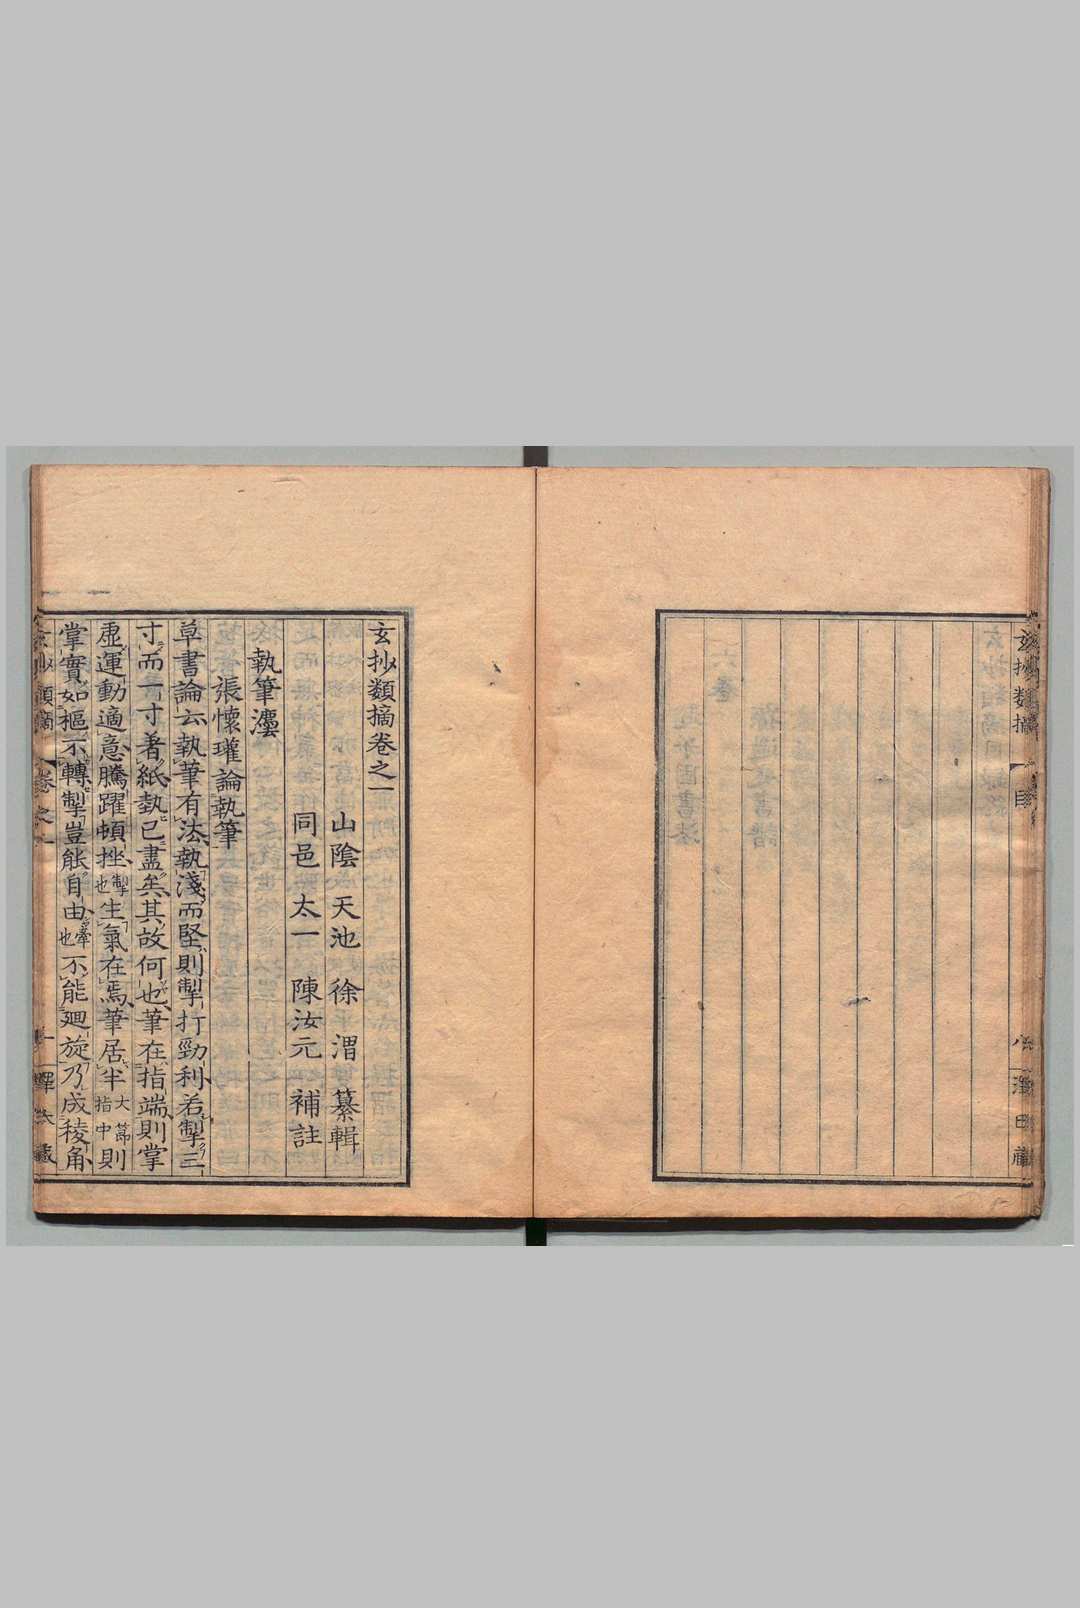 玄抄類摘
目
八
澤田藏
玄抄類摘卷之一
山陰天池徐渭纂輯
同邑太一陳汝元補註
執筆灋
張懷瓘論執筆
草書論云執筆有法執淺而堅則掣打勁利若掣三
寸而一寸著紙埶已盡矣其故何也筆在指端則掌
虛運動適意騰躍頓挫掣也生氣在焉筆居半大節中指則
掌實如樞不轉掣豈能自由牽也不能廻旋乃成稜角
玄抄類摘
卷之一
一